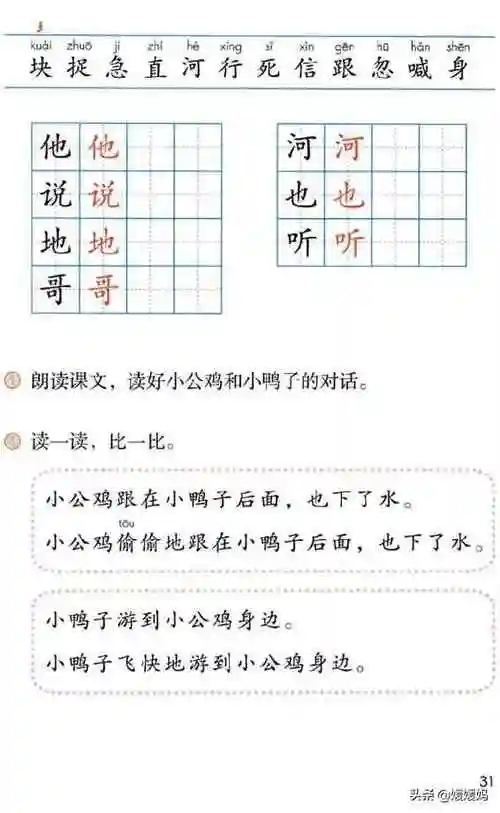 kuài zhuō jí zhí hé xíng sǐ xìn gēn hū hǎn shēn
块 捉 急 直 河 行 死 信 跟 忽 喊 身
他 他 河 河
说 说 也 也
地 地 听 听
哥 哥
朗读课文，读好小公鸡和小鸭子的对话。
读一读，比一比。
小公鸡跟在小鸭子后面，也下了水。
tōu
小公鸡偷偷地跟在小鸭子后面，也下了水。
小鸭子游到小公鸡身边。
小鸭子飞快地游到小公鸡身边。
31
头条 @媛媛妈